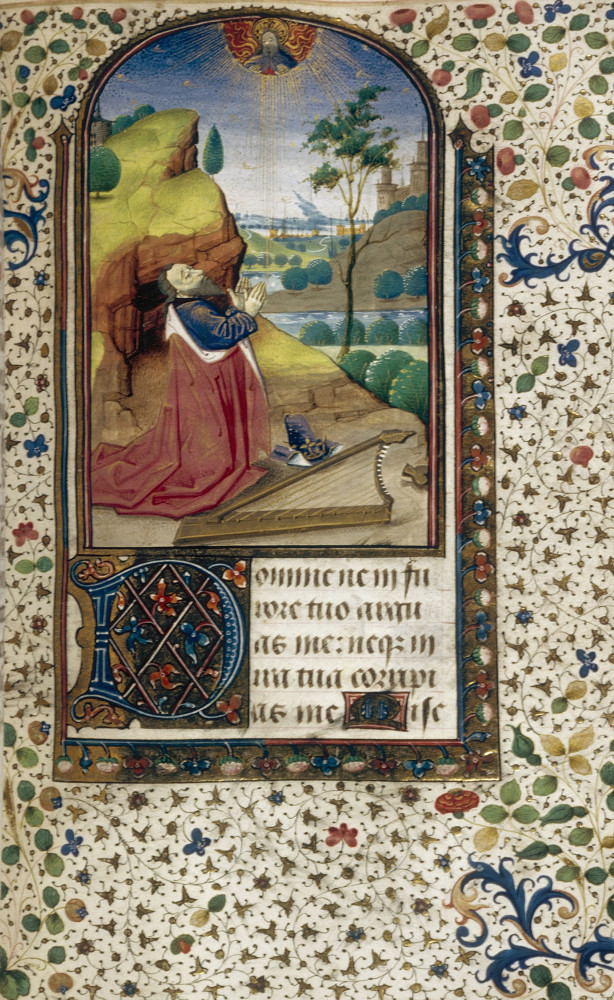 Domine ne in fu
rore tuo argu
as me: neq3 in
ira tua corripi
as me Mise